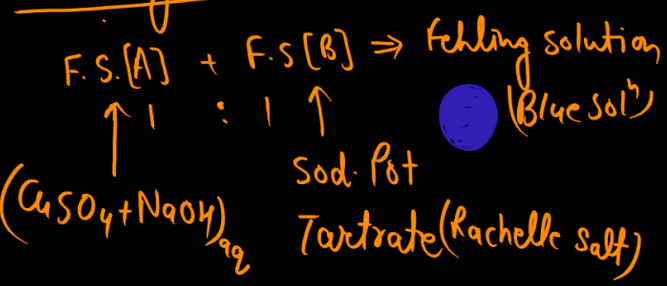 F.S.[A] + F.S[B] ⇒ Fehling solution
1 : 1 (Blue solⁿ)
Sod. Pot
(CuSO4+NaOH)aq Tartrate (Rachelle salt)